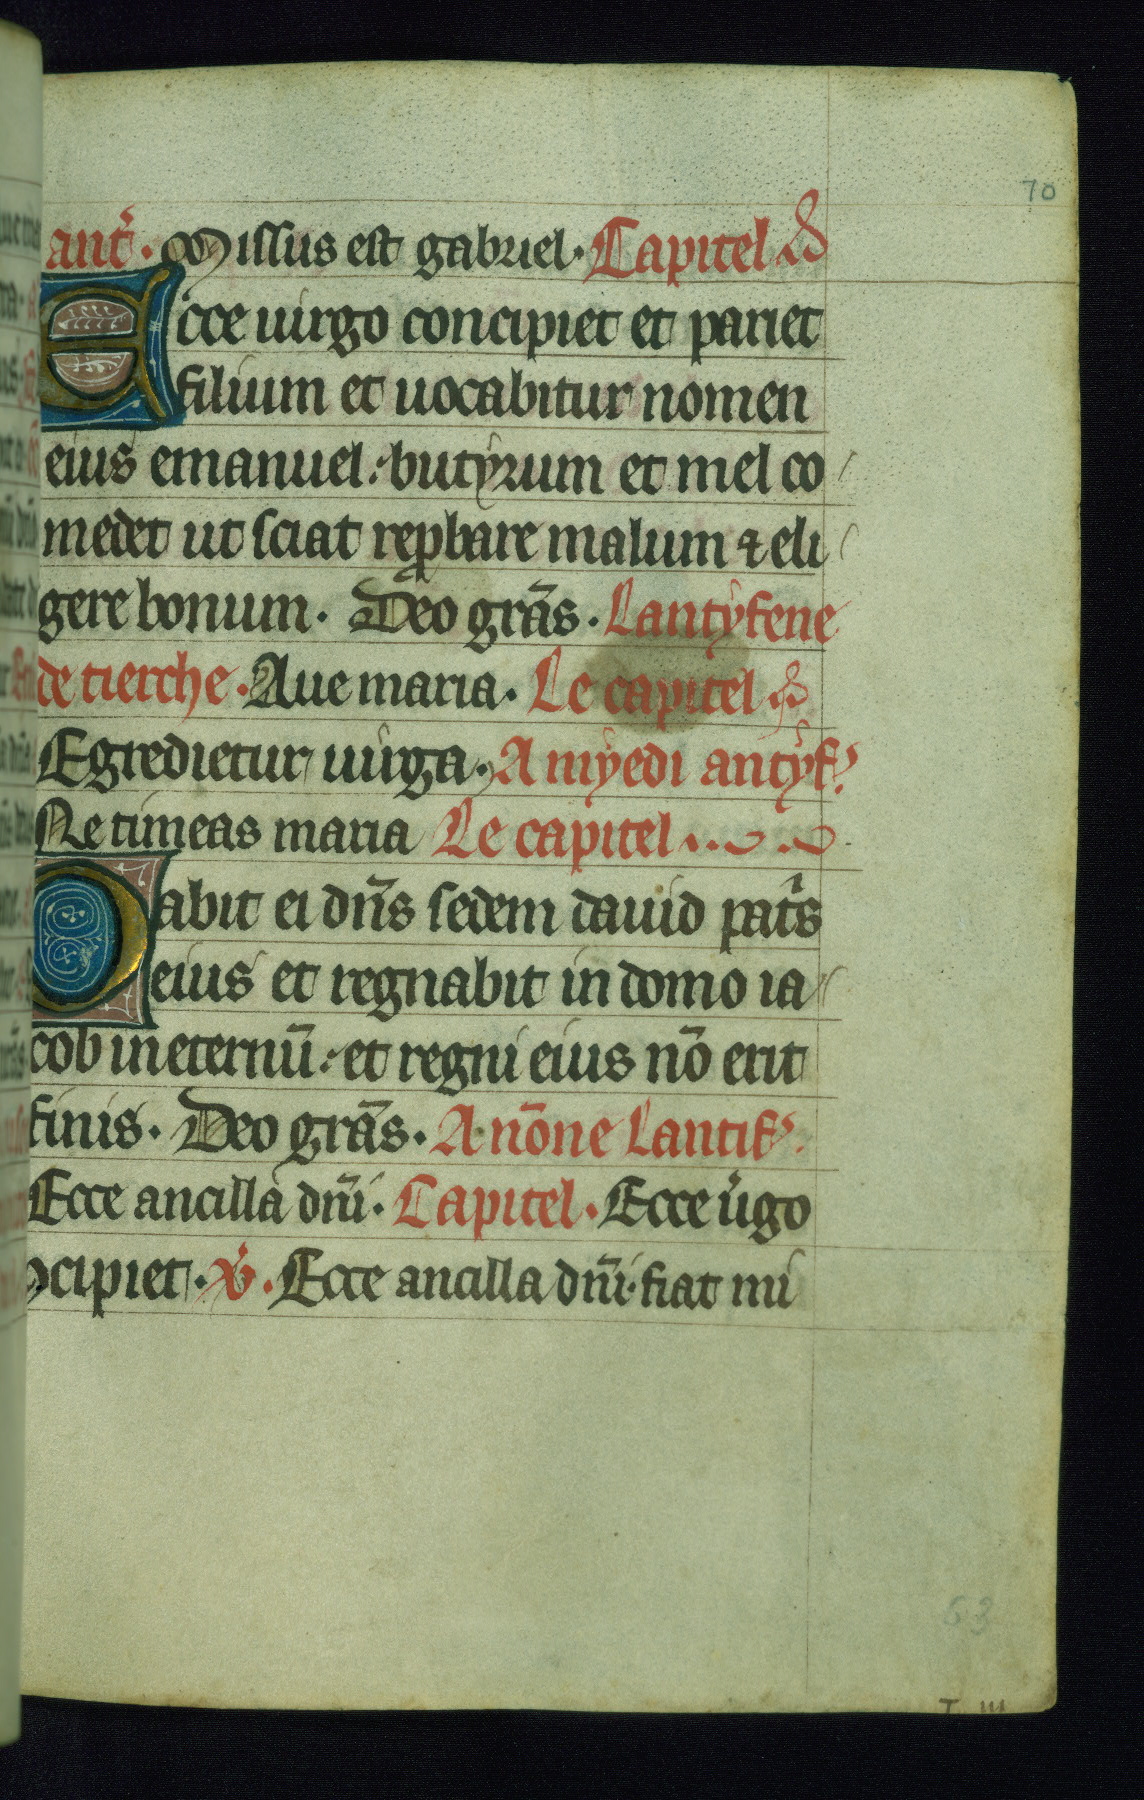 70
ant̃. Missus est gabriel. Capitel
Ecce uirgo concipiet et pariet
filium et uocabitur nomen
eius emanuel. butyrum et mel co
medet ut sciat repbare malum ⁊ eli
gere bonum. Deo grãs. Lantyfene
de tierche. Aue maria. Le capitel
Egredietur uirga. A miyedi antyf.
Ne timeas maria Le capitel
Dabit ei dñs sedem dauid patis
eius et regnabit in domo ia
cob in eternũ. et regni eius nõ erit
finis. Deo grãs. A nõne Lantif.
Ecce ancilla dñi. Capitel. Ecce uigo
ↄcipiet. ℣. Ecce ancilla dñi. fiat mi
63